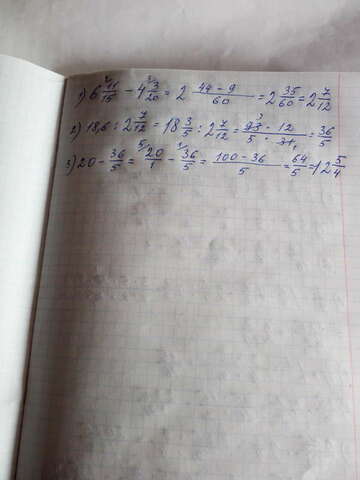 1) 6 11/15 - 4 3/20 = 2 (44 - 9)/60 = 2 35/60 = 2 7/12
2) 18,6 : 2 7/12 = 18 3/5 : 2 7/12 = (93 · 12)/(5 · 31) = 36/5
3) 20 - 36/5 = 20/1 - 36/5 = (100 - 36)/5 = 64/5 = 12 5/4